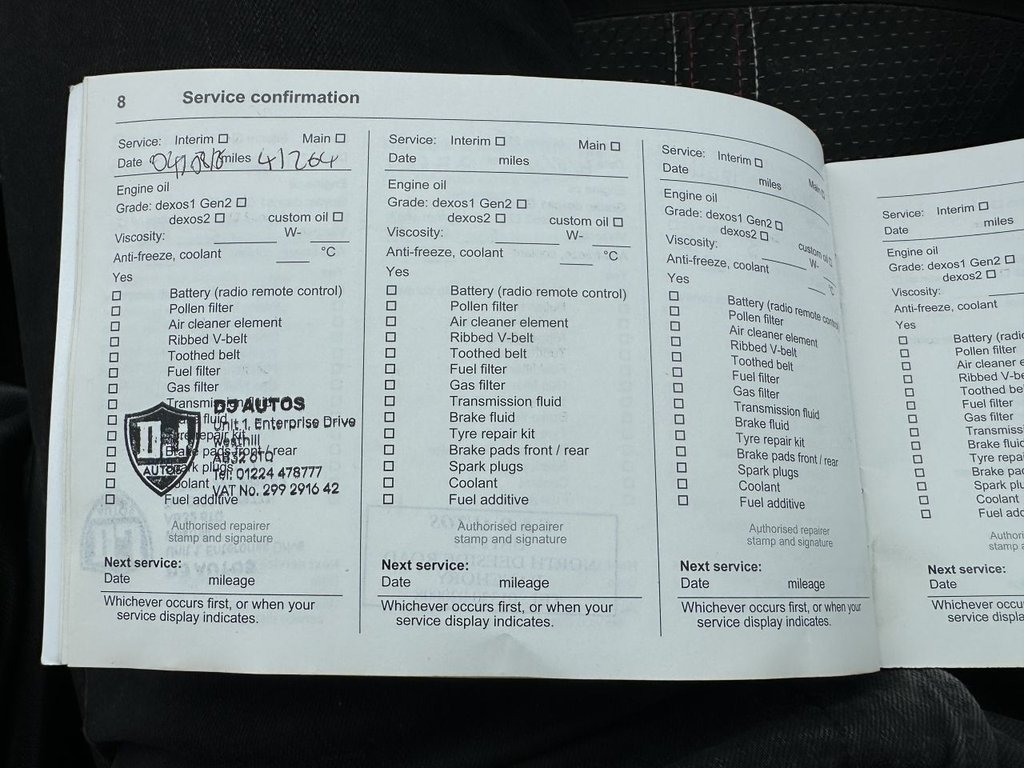 8 Service confirmation
Service: Interim ☐ Main ☐
Date miles 41264
Engine oil
Grade: dexos1 Gen2 ☐
dexos2 ☐ custom oil ☐
Viscosity: W-
Anti-freeze, coolant °C
Yes
☐ Battery (radio remote control)
☐ Pollen filter
☐ Air cleaner element
☐ Ribbed V-belt
☐ Toothed belt
☐ Fuel filter
☐ Gas filter
☐ Transmission fluid
fluid
Tyre repair kit
Brake pads front / rear
Spark plugs
☐ Coolant
☐ Fuel additive
DJ AUTOS
Unit 1, Enterprise Drive
Westhill
AB32 6TQ
Tel: 01224 478777
VAT No. 299 2916 42
AUTOS
Authorised repairer
stamp and signature
Next service:
Date mileage
Whichever occurs first, or when your
service display indicates.
Service: Interim ☐ Main ☐
Date miles
Engine oil
Grade: dexos1 Gen2 ☐
dexos2 ☐ custom oil ☐
Viscosity: W-
Anti-freeze, coolant °C
Yes
☐ Battery (radio remote control)
☐ Pollen filter
☐ Air cleaner element
☐ Ribbed V-belt
☐ Toothed belt
☐ Fuel filter
☐ Gas filter
☐ Transmission fluid
☐ Brake fluid
☐ Tyre repair kit
☐ Brake pads front / rear
☐ Spark plugs
☐ Coolant
☐ Fuel additive
Authorised repairer
stamp and signature
Next service:
Date mileage
Whichever occurs first, or when your
service display indicates.
Service: Interim ☐ Main ☐
Date miles
Engine oil
Grade: dexos1 Gen2 ☐
dexos2 ☐ custom oil ☐
Viscosity: W-
Anti-freeze, coolant °C
Yes
☐ Battery (radio remote control)
☐ Pollen filter
☐ Air cleaner element
☐ Ribbed V-belt
☐ Toothed belt
☐ Fuel filter
☐ Gas filter
☐ Transmission fluid
☐ Brake fluid
☐ Tyre repair kit
☐ Brake pads front / rear
☐ Spark plugs
☐ Coolant
☐ Fuel additive
Authorised repairer
stamp and signature
Next service:
Date mileage
Whichever occurs first, or when your
service display indicates.
Service: Interim ☐
Date miles
Engine oil
Grade: dexos1 Gen2 ☐
dexos2 ☐
Viscosity:
Anti-freeze, coolant
Yes
☐ Battery (radio
☐ Pollen filter
☐ Air cleaner e
☐ Ribbed V-be
☐ Toothed be
☐ Fuel filter
☐ Gas filter
☐ Transmiss
☐ Brake fluid
☐ Tyre repa
☐ Brake pa
☐ Spark plu
☐ Coolant
☐ Fuel add
Authori
stamp a
Next service:
Date
Whichever occurs
service displa